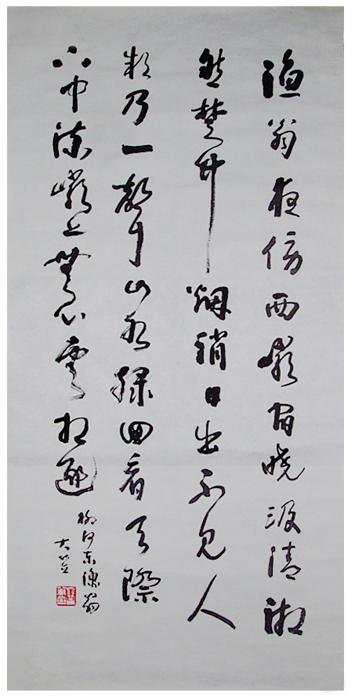 漁翁夜傍西巖宿曉汲清湘
然楚竹烟銷日出不見人
欸乃一聲山水綠回看天際
下中流巖上無心雲相逐
柳河東漁翁
大